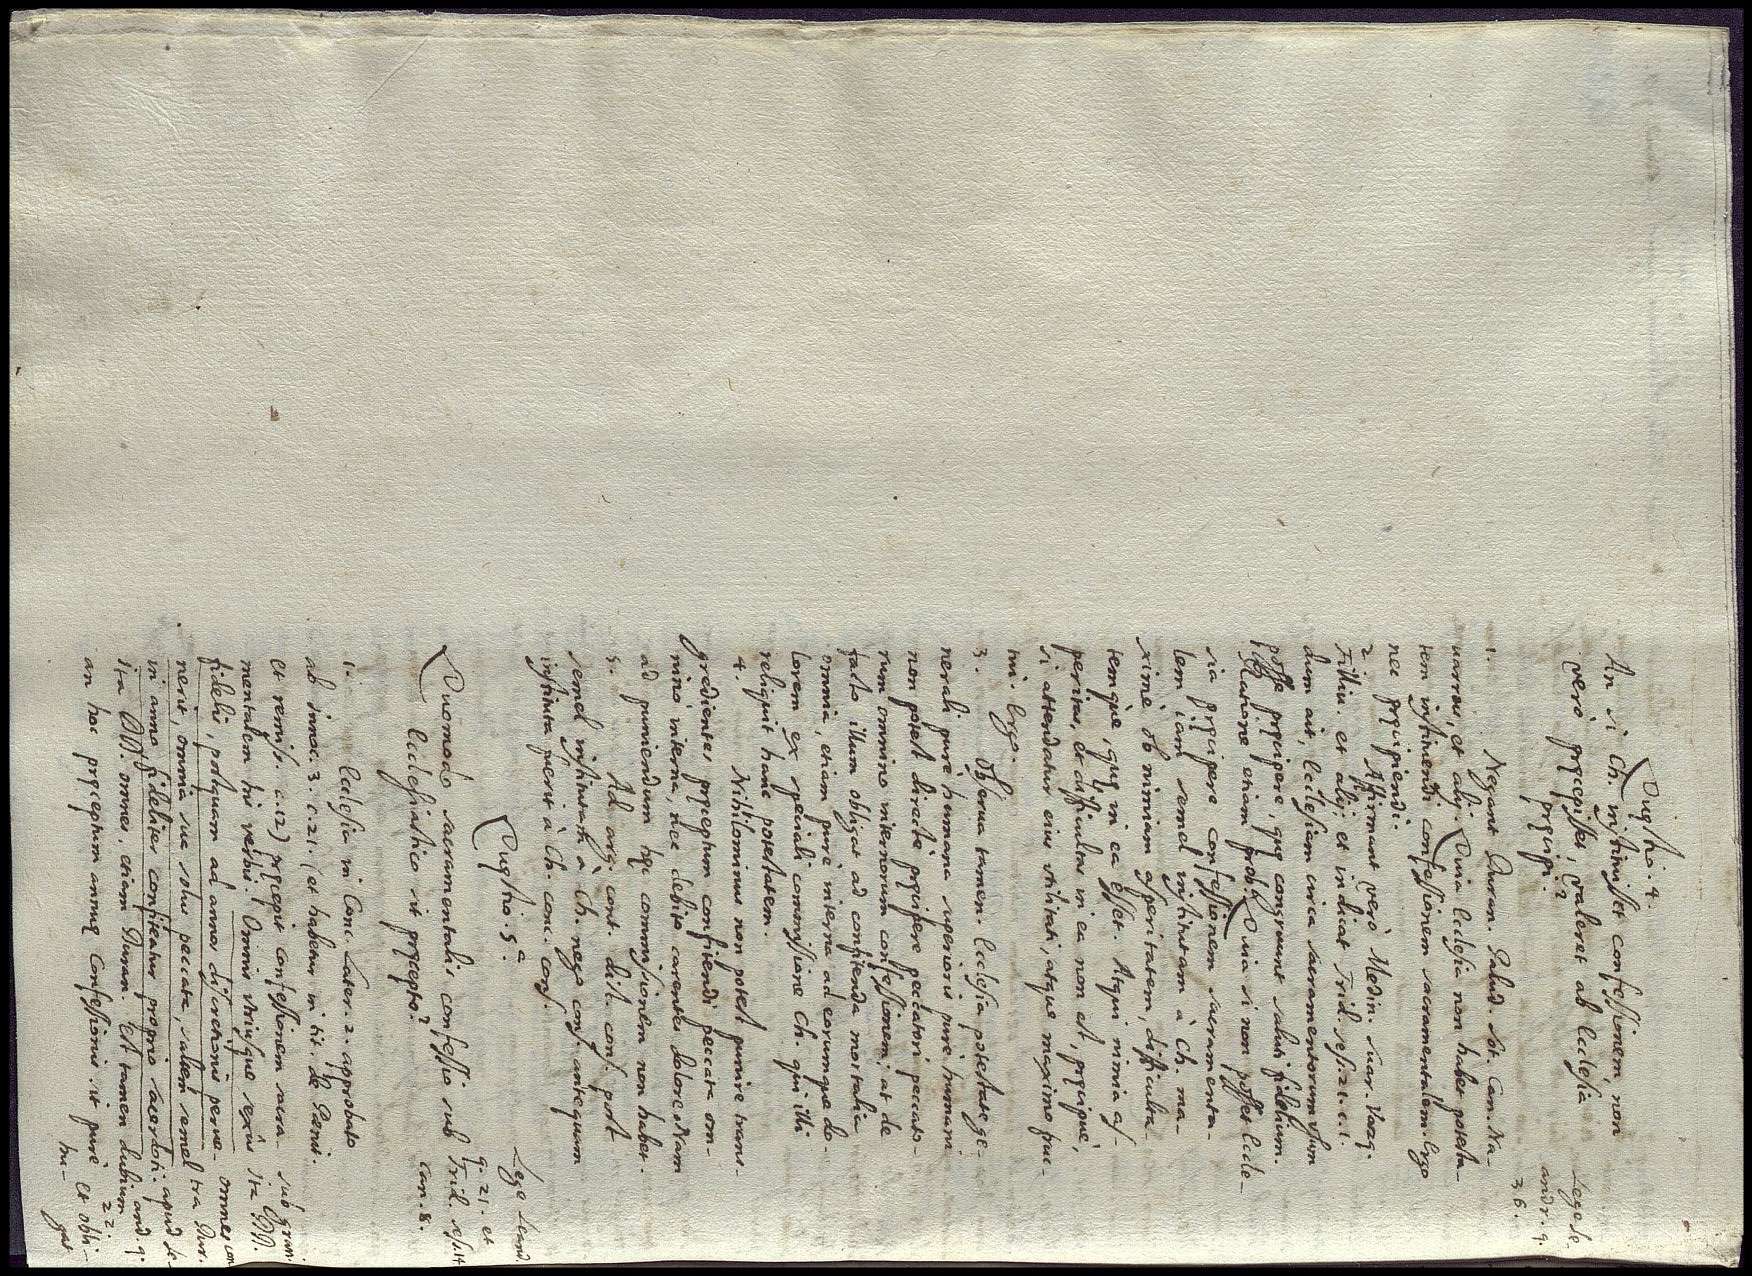 Quęstio. 4.
An si Ch. instituisset confessionem, non
vero pręcepisset, valeret ab Ecclesia
pręcipi.
Lege Le-
andr. q.
36.
1. Negant Duran. Palud. Sot. Can. Na-
uarrus, et alij. Quia Ecclesia non habet potesta-
tem instituendi confessionem sacramentalem. Ergo
nec pręcipiendi.
2. Affirmant vero Medin. Suar. Vazq.
Filliu. et alij; et indicat Trid. sess. 21. c. 2.
dum ait, Ecclesiam circa sacramentorum usum
posse pręcipere, quę congruunt saluti fidelium.
Ratione etiam prob. Quia si non posset Eccle-
sia pręcipere confessionem sacramenta-
lem iam semel institutam à Ch. ma-
xime ob nimiam asperitatem, difficulta-
temque, quę in ea esset. Atqui nimia as-
peritas, et difficultas in ea non est, pręcipue,
si attendatur eius utilitati, atque maximo fruc-
tui. Ergo
3. Obserua tamen. Ecclesia potestate ge-
nerali purè humana superioris purè humani
non potest directè pręcipere peccatori peccato-
rum omnino internorum confessionem; at de
facto illum obligat ad confitenda mortalia
omnia, etiam purè interna ad eorumque do-
lorem ex speciali commissione Ch. qui illi
reliquit hanc potestatem.
4. Nihilominus non potest punire trans-
gredientes pręceptum confitendi peccata om-
nino interna, nec debito carentes dolore. Nam
ad puniendum hęc commissionem non habet.
5. Ad arg. cont. dist. cons. post
semel institutam à Ch. nego cons. antequam
instituta fuerit à Ch. conc. cons.
Quęstio. 5ª.
Quomodo sacramentalis confessio sub
Ecclesiastico sit pręcepto?
Lege Leand.
q. 21. et
Trid. sess. 14.
can. 8.
1. Ecclesia in Conc. Later. 2. approbato
ab Innoc. 3. c. 21. (et habetur in tit. de Pęnit.
et remiss. c. 12) pręcepit confessionem sacra-
mentalem his verbis. Omnis utriusque sexus
fidelis, postquam ad annos discretionis perue-
nerit, omnia sua solus peccata, saltem semel
in anno fideliter confiteatur proprio sacerdoti.
Ita DD. omnes, etiam Duran. Est tamen dubium
an hoc pręceptum annuę Confessionis sit purè
hu-
sub graui.
Ita DD.
omnes con
tra Dur.
apud Le-
and. q.
22.
Et obli-
gat